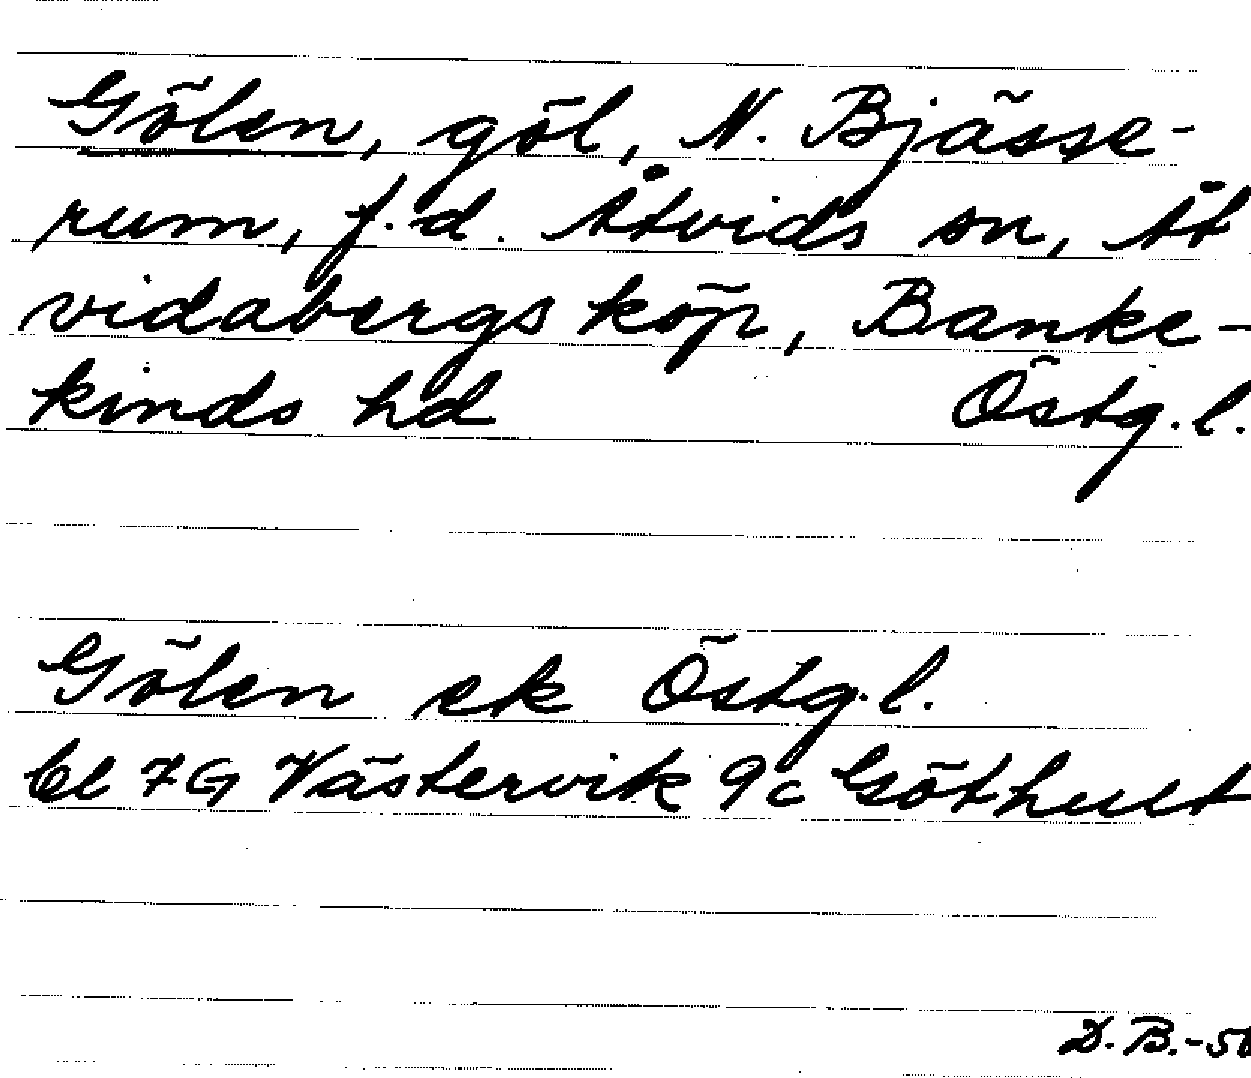 Gölen, göl, N. Bjässe-
rum, f.d. Åtvids sn, Åt
vidabergs köp, Banke-
kinds hd Östg.l.
Gölen ek Östg.l.
bl 7G Västervik 9c Göthult
D.B.-50